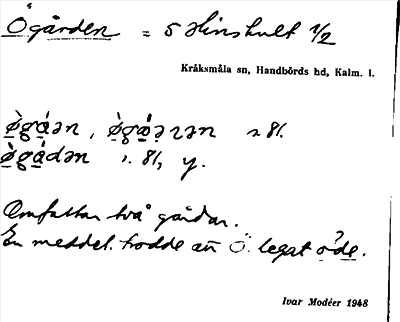 Ögården = 5 Hinshult 1/2
Kråksmåla sn, Handbörds hd, Kalm. l.
ø̀gǻən, s. 81.
ø̀gǻdən s. 81, y.
Omfattar två gårdar.
En meddel. trodde att Ö. legat öde.
Ivar Modéer 1948